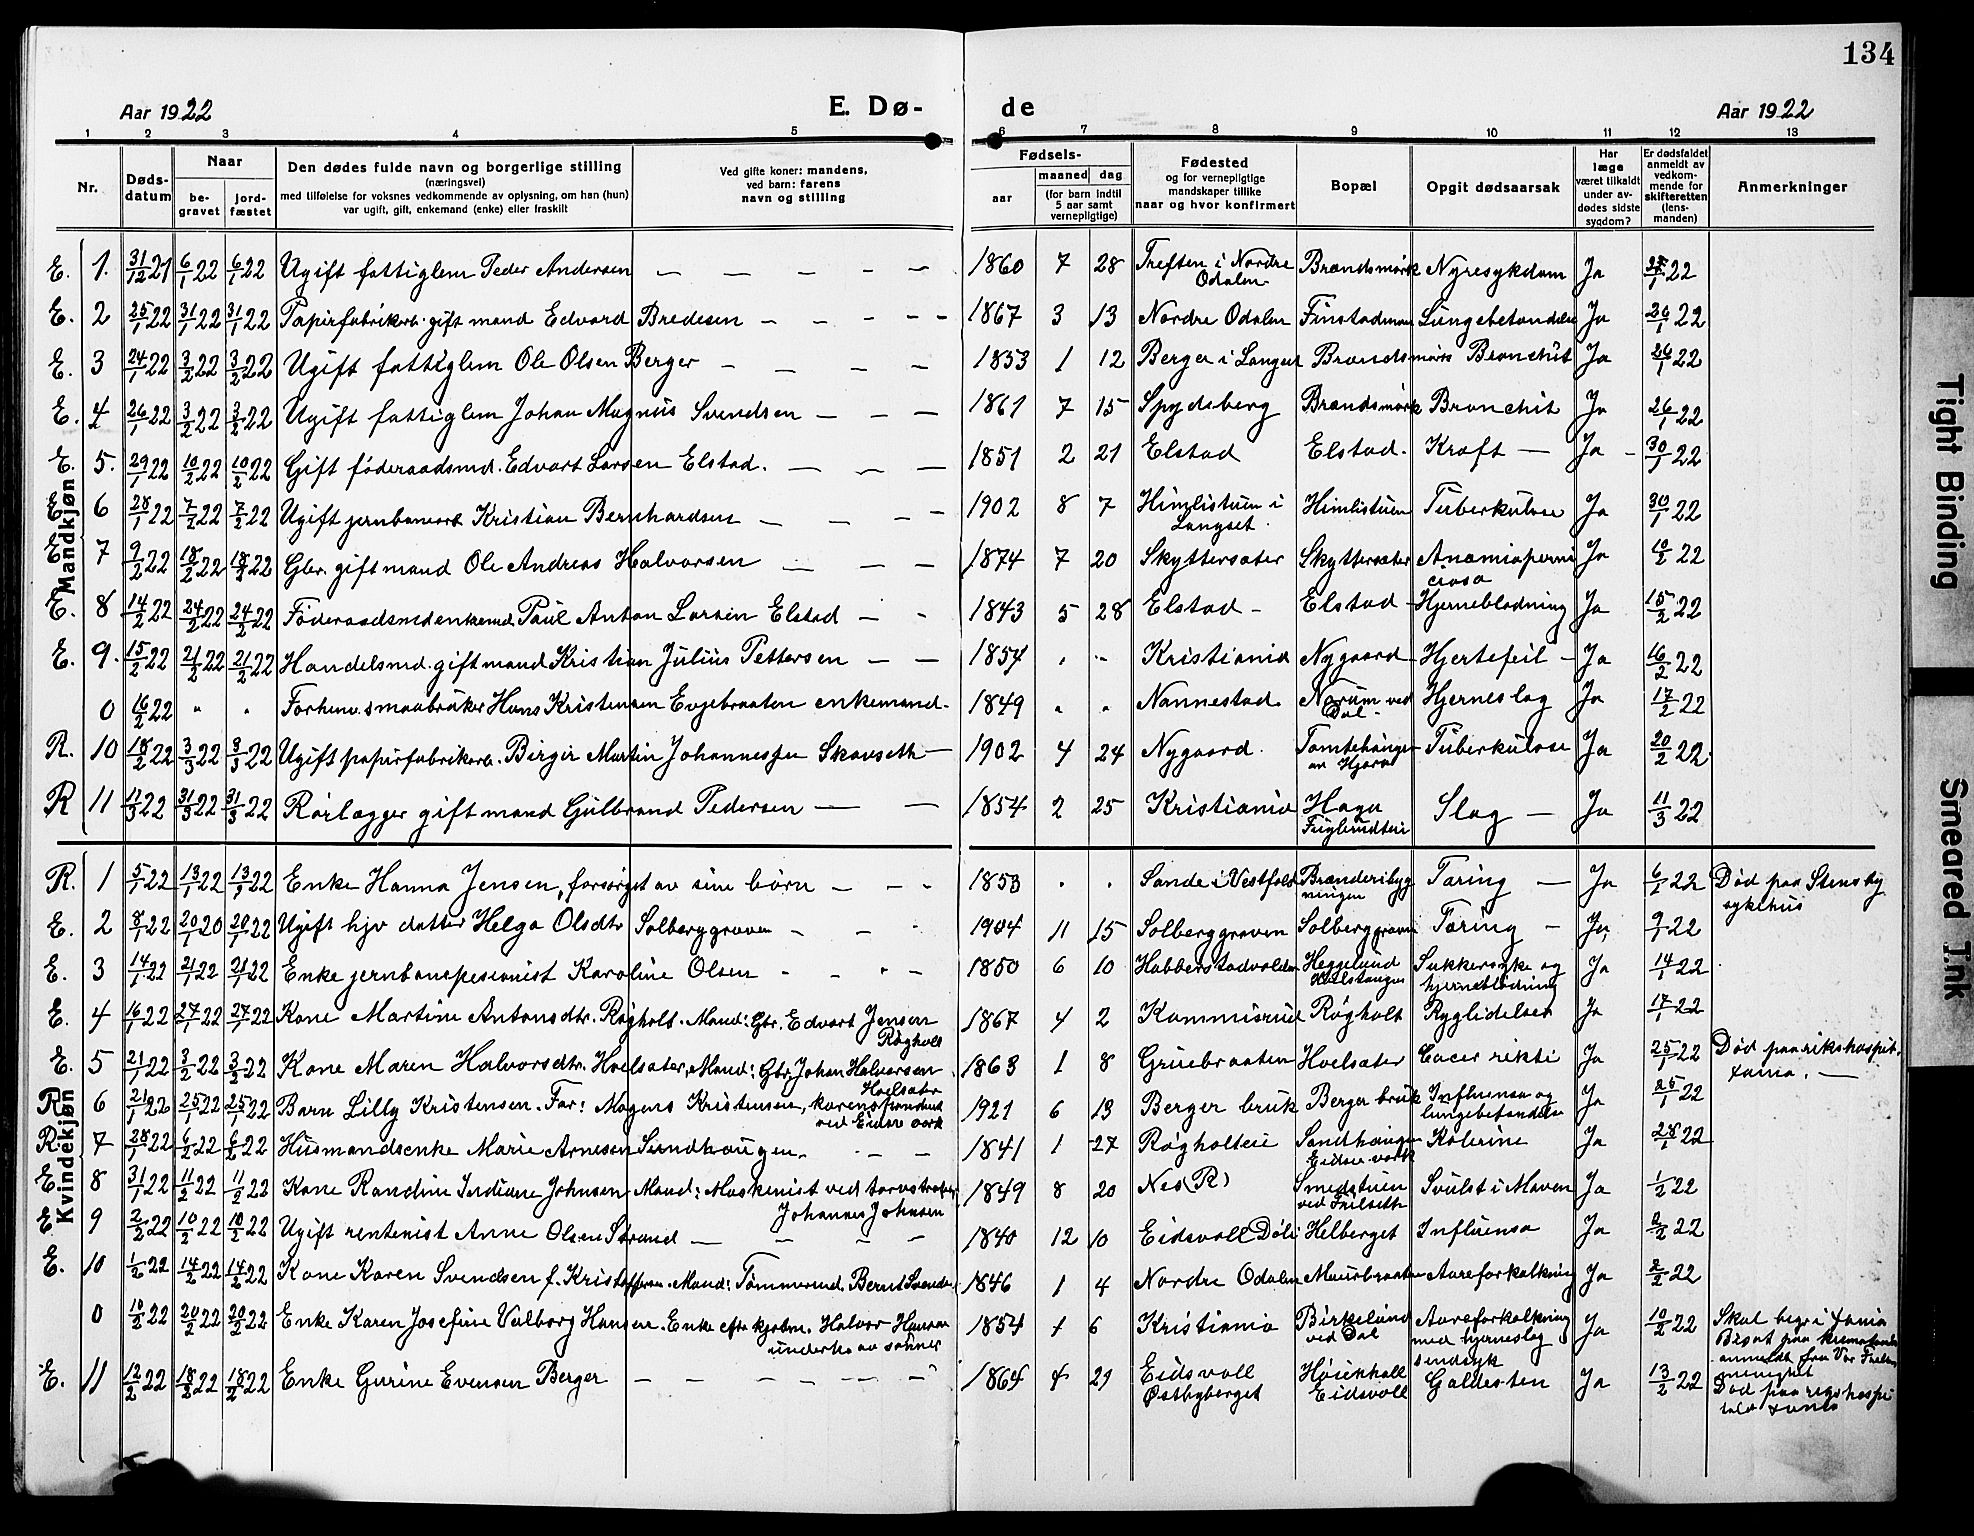 134
Aar 1922 E. Dø- de Aar 1922
1 2 3 4 5 6 7 8 9 10 11 12 13
Nr.
Døds-
datum
Naar
be-
gravet
jord-
fæstet
Den dødes fulde navn og borgerlige stilling
(næringsvei)
med tilføielse for voksnes vedkommende av oplysning, om han (hun)
var ugift, gift, enkemand (enke) eller fraskilt
Ved gifte koner: mandens,
ved barn: farens
navn og stilling
Fødsels-
aar
maaned dag
(for barn indtil
5 aar samt
vernepligtige)
Fødested
og for vernepligtige
mandskaper tillike
naar og hvor konfirmert
Bopæl
Opgit dødsaarsak
Har
læge
været tilkaldt
under av-
dødes sidste
sygdom?
Er dødsfaldet
anmeldt av
vedkom-
mende for
skifteretten
(lens-
manden)
Anmerkninger
Mandkjøn
E. 1. 31/12 21 6/1 22 6/1 22 Ugift fattiglem Peder Andersen — — — — — 1860 7 28 Treften i Nordre Odalen Brændsmørk Nyresykdom Ja 22
E. 2 25/1 22 31/1 22 31/1 22 Papirfabrikarb. gift mand Edvard Bredesen — — — — 1867 3 13 Nordre Odalen Lungebetændelse Ja 26/1 22
E. 3 24/1 22 3/2 22 3/2 22 Ugift fattiglem Ole Olsen Berger — — — — 1833 1 12 Berger i Langset Brændsmørk Bronchit Ja 26/1 22
E. 4 26/1 22 3/2 22 3/2 22 Ugift fattiglem Johan Magnus Svendsen — — — 1861 7 15 Spydeberg Brændsmørk Bronchit Ja 26/1 22
E. 5. 29/1 22 10/2 22 10/2 22 Gift føderaadsmd. Edvart Larsen Elstad. — — — 1851 2 21 Elstad Elstad. Kræft — Ja - 30/1 22
E. 6 28/1 22 7/2 22 7/2 22 Ugift jernbanearb. Kristian Bernhardsen — — — 1902 8 7 Himlistuen i Langset. Himlistuen Tuberkulose Ja 30/1 22
E. 7 9/2 22 18/2 22 18/2 22 Gbr. gift mand Ole Andreas Halvorsen — — — 1874 7 20 Skyttersæter Skyttersæter Anæmiaperniciosa Ja 10/2 22
E. 8 14/2 22 24/2 22 24/2 22 Føderaadsmd enkemd. Paul Anton Larsen Elstad — - 1843 5 28 Elstad - Elstad - Hjerneblødning Ja 15/2 22
E. 9. 15/2 22 21/2 22 21/2 22 Handelsmd. gift mand Kristian Julius Pettersen — — 1854 " " Kristiania Nygaard - Hjertefeil - Ja 16/2 22
0 16/2 22 " " Forhenv. smaabruker Hans Kristensen Evjebraaten enkemand. 1849 " " Nannestad. Norum ved Dal - Hjerneslag Ja 17/2 22
R. 10 18/2 22 3/3 22 3/3 22 Ugift papirfabrikarb. Birger Martin Johannessen Skauseth — 1902 4 24 Nygaard. Tuberkulose Ja 20/2 22
R 11 11/3 22 31/3 22 31/3 22 Rørlægger gift mand Gulbrand Pedersen — — 1854 2 25 Kristiania Haga Slag — Ja 11/3 22
Kvindekjøn
R. 1 5/1 22 13/1 22 13/1 22 Enke Hanna Jensen, forsørget av sine børn — - - 1853 . . Sande i Vestfold Brænderibygningen Tæring — Ja 6/1 22 Død paa Stensby sykehus
E. 2 8/1 22 20/1 20 20/1 22 Ugift hjv datter Helga Olsdtr Solberggraven — - . 1904 11 15 Solberggraven Solberggraven Tæring - Ja 9/1 22
E. 3 14/1 22 21/1 22 21/1 22 Enke jernbanepesionist Karoline Olsen - - - - 1850 6 10 Habberstadvolden Heggelund Sukkersyke og hjerneblødning Ja 14/1 22
E. 4 16/1 22 27/1 22 27/1 22 Kone Martine Antonsdtr. Røgholt. Mand: Gbr. Edvart Jensen Røgholt 1867 4 2 Kommisrud Røgholt Ryglidelser Ja 17/1 22
E. 5 21/1 22 3/2 22 3/2 22 Kone Maren Halvorsdtr. Hvelsæter, Mand: Gbr. Johan Halvorsen Hvelsæter 1863 1 8 Gruebraaten Hvelsæter Ja 25/1 22 Død paa rikshospit. Xania. —
R 6 21/1 22 25/1 22 25/1 22 Barn Lilly Kristensen. Far: Mogens Kristensen, ved Eidsv. værk 1921 6 13 Berger bruk Berger bruk Influensa og lungebetændelse Ja 25/1 22
R 7 28/1 22 6/2 22 6/2 22 Husmandsenke Marie Arnesen Sandhaugen. - - - 1841 1 27 Røgholteie Sandhaugen Eidsv. værk Kolerine Ja 28/1 22
E. 8 31/1 22 11/2 22 11/2 22 Kone Randine Indiane Johnsen Mand: Maskenist ved Johannes Johnsen 1849 8 20 Nes (R) Smedstuen Svulst i Maven Ja 1/2 22
E 9 2/2 22 10/2 22 10/2 22 Ugift rentenist Anne Olsen Strand — - - - 1840 12 10 Eidsvoll Døli Helberget Influensa Ja 2/2 22
E. 10 1/2 22 14/2 22 14/2 22 Kone Karen Svendsen f. Kristoffersen. Mand: Tømmermd. Bernt Svendsen 1846 1 4 Nordre Odalen Maurbraaten Aareforkalkning Ja 2/2 22
0 10/2 22 20/2 22 20/2 22 Enke Karen Josefine Valborg Hansen. Enke efter kjøbm. Halvor Hansen underh. av sønner 1854 1 6 Kristiania Birkelund ved Dal Aareforkalkning med hjerneslag sindsyk Ja 10/2 22 Skal begr i Xania anmeldt fra Vor Frelsers menighet
E. 11 12/2 22 18/2 22 18/2 22 Enke Gurine Evensen Berger — — — — — 1864 4 29 Eidsvoll Østbyberget Eidsvoll Galdesten Ja 13/2 22 Død paa rigshospitalet Xania
Tight Binding
Smeared Ink